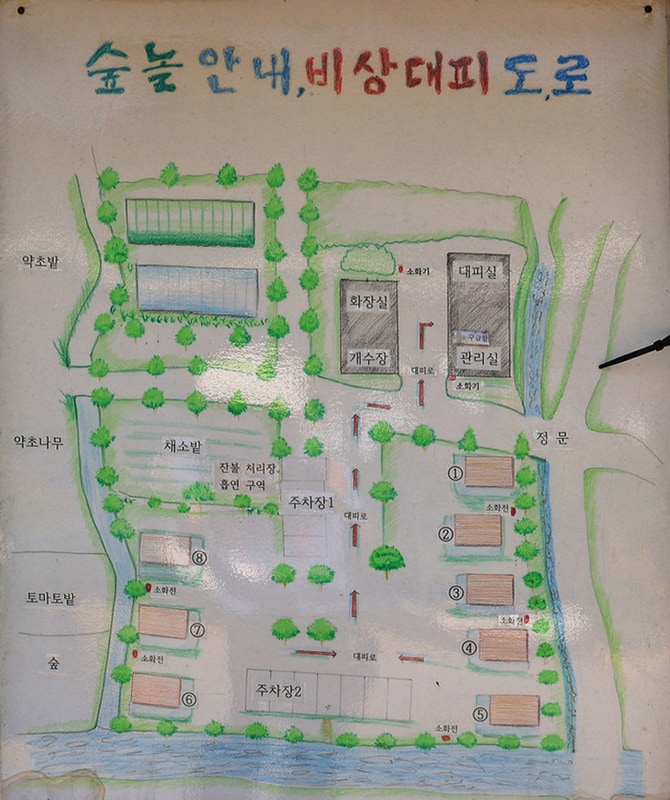 숲놀 안내, 비상대피 도,로
약초밭
소화기
대피실
화장실
구급함
개수장
관리실
대피로
소화기
약초나무
채소밭
정 문
잔불 처리장,
흡연 구역
①
주차장1
소화전
대피로
②
⑧
③
소화전
토마토밭
소화전
⑦
④
소화전
대피로
숲
⑥
주차장2
⑤
소화전